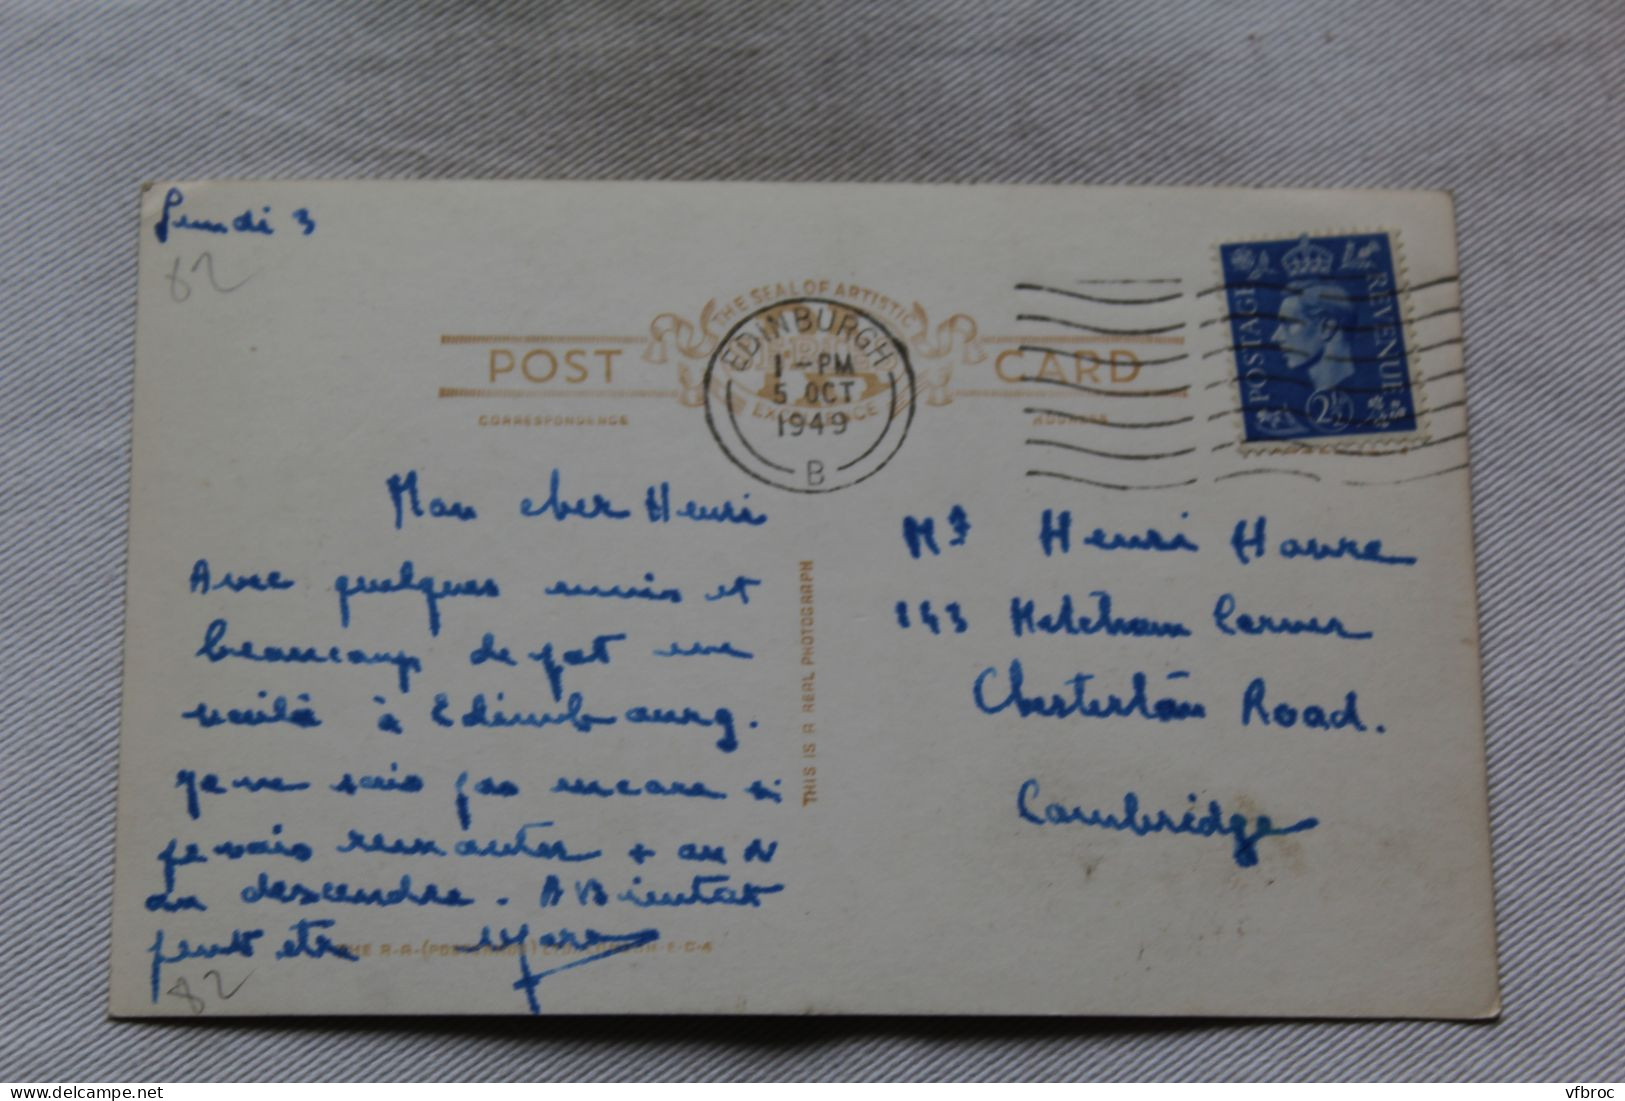 Lundi 3
82
THE SEAL OF ARTISTIC
EXCELLENCE
POST CARD
CORRESPONDENCE
ADDRESS
EDINBURGH
1-PM
5 OCT
1949
B
POSTAGE
REVENUE
2½
Mon cher Henri
Avec quelques amis et
beaucoup de pot me
voilà à Edimbourg.
Je ne sais pas encore si
je vais remonter + au N
ou descendre. A Bientot
peut etre
THIS IS A REAL PHOTOGRAPH
Mr Henri
143 Corner
Chesterton Road.
Cambridge
82
delcampe.net
vfbroc